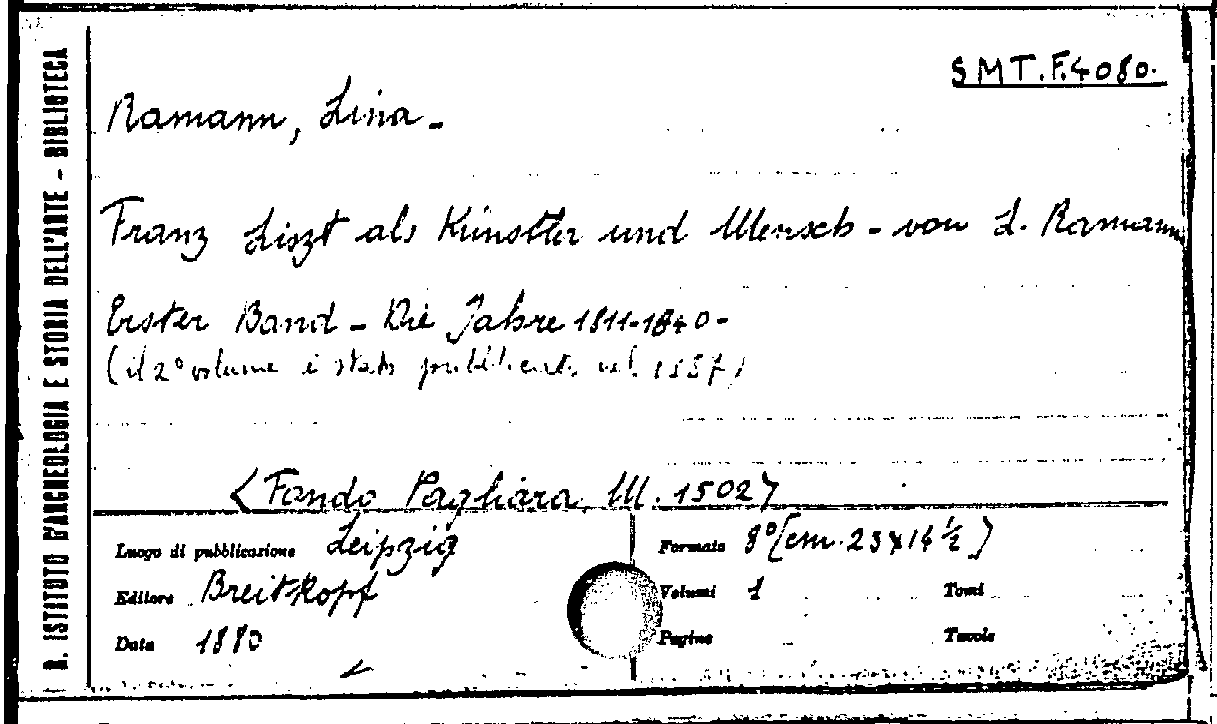 R. ISTITUTO D'ARCHEOLOGIA E STORIA DELL'ARTE - BIBLIOTECA
SMT.F.4080.
Ramann, Lina -
Franz Liszt als Künstler und Mensch - von L. Ramann
Erster Band - Die Jahre 1811-1840 -
(il 2° volume è stato pubblicato nel 1887)
<Fondo Pagliara, M. 1502>
Luogo di pubblicazione Leipzig
Editore Breitkopf
Data 1880
Formato 8° (cm. 23x14 ½)
Volumi 1 Tomi
Pagine Tavole